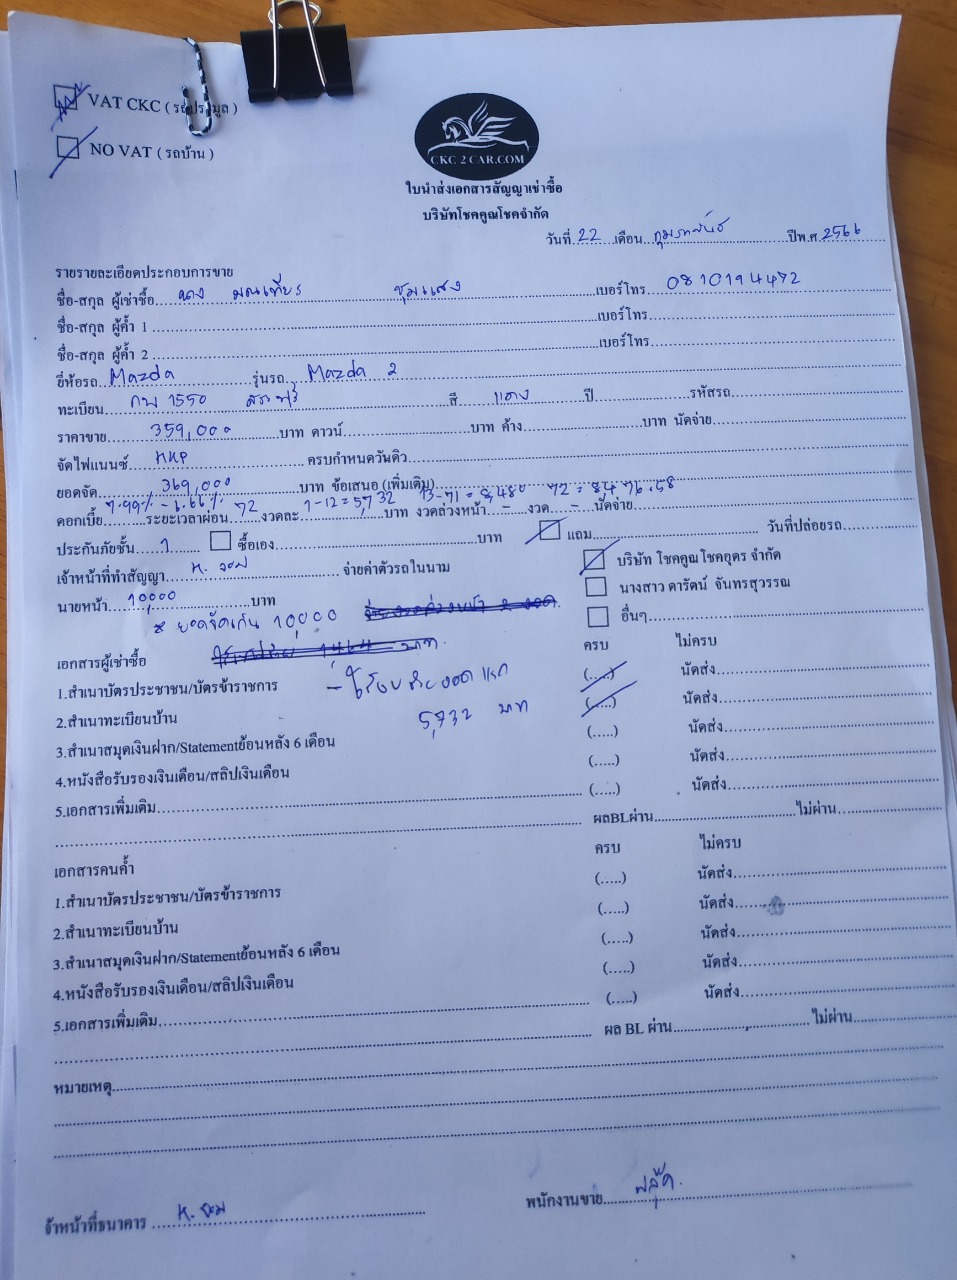 VAT CKC ( รถประมูล )
NO VAT ( รถบ้าน )
CKC 2 CAR.COM
ใบนำส่งเอกสารสัญญาเช่าซื้อ
บริษัทโชคคูณโชคจำกัด
วันที่ 22 เดือน กุมภาพันธ์ ปีพ.ศ. 2566
รายรายละเอียดประกอบการขาย
ชื่อ-สกุล ผู้เช่าซื้อ นาง มณเฑียร ชุมแสง เบอร์โทร 0810194472
ชื่อ-สกุล ผู้ค้ำ 1 เบอร์โทร
ชื่อ-สกุล ผู้ค้ำ 2 เบอร์โทร
ยี่ห้อรถ Mazda รุ่นรถ Mazda 2
ทะเบียน กพ 1550 สี แดง ปี รหัสรถ
ราคาขาย 359,000 บาท ดาวน์ บาท ค้าง บาท นัดจ่าย
จัดไฟแนนซ์ KKP ครบกำหนดวันดิว
ยอดจัด 369,000 บาท ข้อเสนอ (เพิ่มเติม)
7.99% - 6.66% 72 1-12 = 5,732 13-71 = 8,480 72 = 8,476.58
ดอกเบี้ย ระยะเวลาผ่อน งวดละ บาท งวดล่วงหน้า - งวด - นัดจ่าย
ประกันภัยชั้น 1 ซื้อเอง บาท แถม วันที่ปล่อยรถ
เจ้าหน้าที่ทำสัญญา K. จอม จ่ายค่าตัวรถในนาม บริษัท โชคคูณโชคอุดร จำกัด
นางสาว ดารัตน์ จันทรสุวรรณ
นายหน้า 10,000 บาท อื่นๆ
* ยอดจัดเกิน 10,000
เอกสารผู้เช่าซื้อ ครบ ไม่ครบ
1.สำเนาบัตรประชาชน/บัตรข้าราชการ (.....) นัดส่ง
2.สำเนาทะเบียนบ้าน (.....) นัดส่ง
5,732 บาท
3.สำเนาสมุดเงินฝาก/Statementย้อนหลัง 6 เดือน (.....) นัดส่ง
4.หนังสือรับรองเงินเดือน/สลิปเงินเดือน (.....) นัดส่ง
5.เอกสารเพิ่มเติม (.....) นัดส่ง
ผลBLผ่าน ไม่ผ่าน
เอกสารคนค้ำ ครบ ไม่ครบ
1.สำเนาบัตรประชาชน/บัตรข้าราชการ (.....) นัดส่ง
2.สำเนาทะเบียนบ้าน (.....) นัดส่ง
3.สำเนาสมุดเงินฝาก/Statementย้อนหลัง 6 เดือน (.....) นัดส่ง
4.หนังสือรับรองเงินเดือน/สลิปเงินเดือน (.....) นัดส่ง
5.เอกสารเพิ่มเติม (.....) นัดส่ง
ผล BL ผ่าน ไม่ผ่าน
หมายเหตุ
จ้าหน้าที่ธนาคาร K. จอม พนักงานขาย